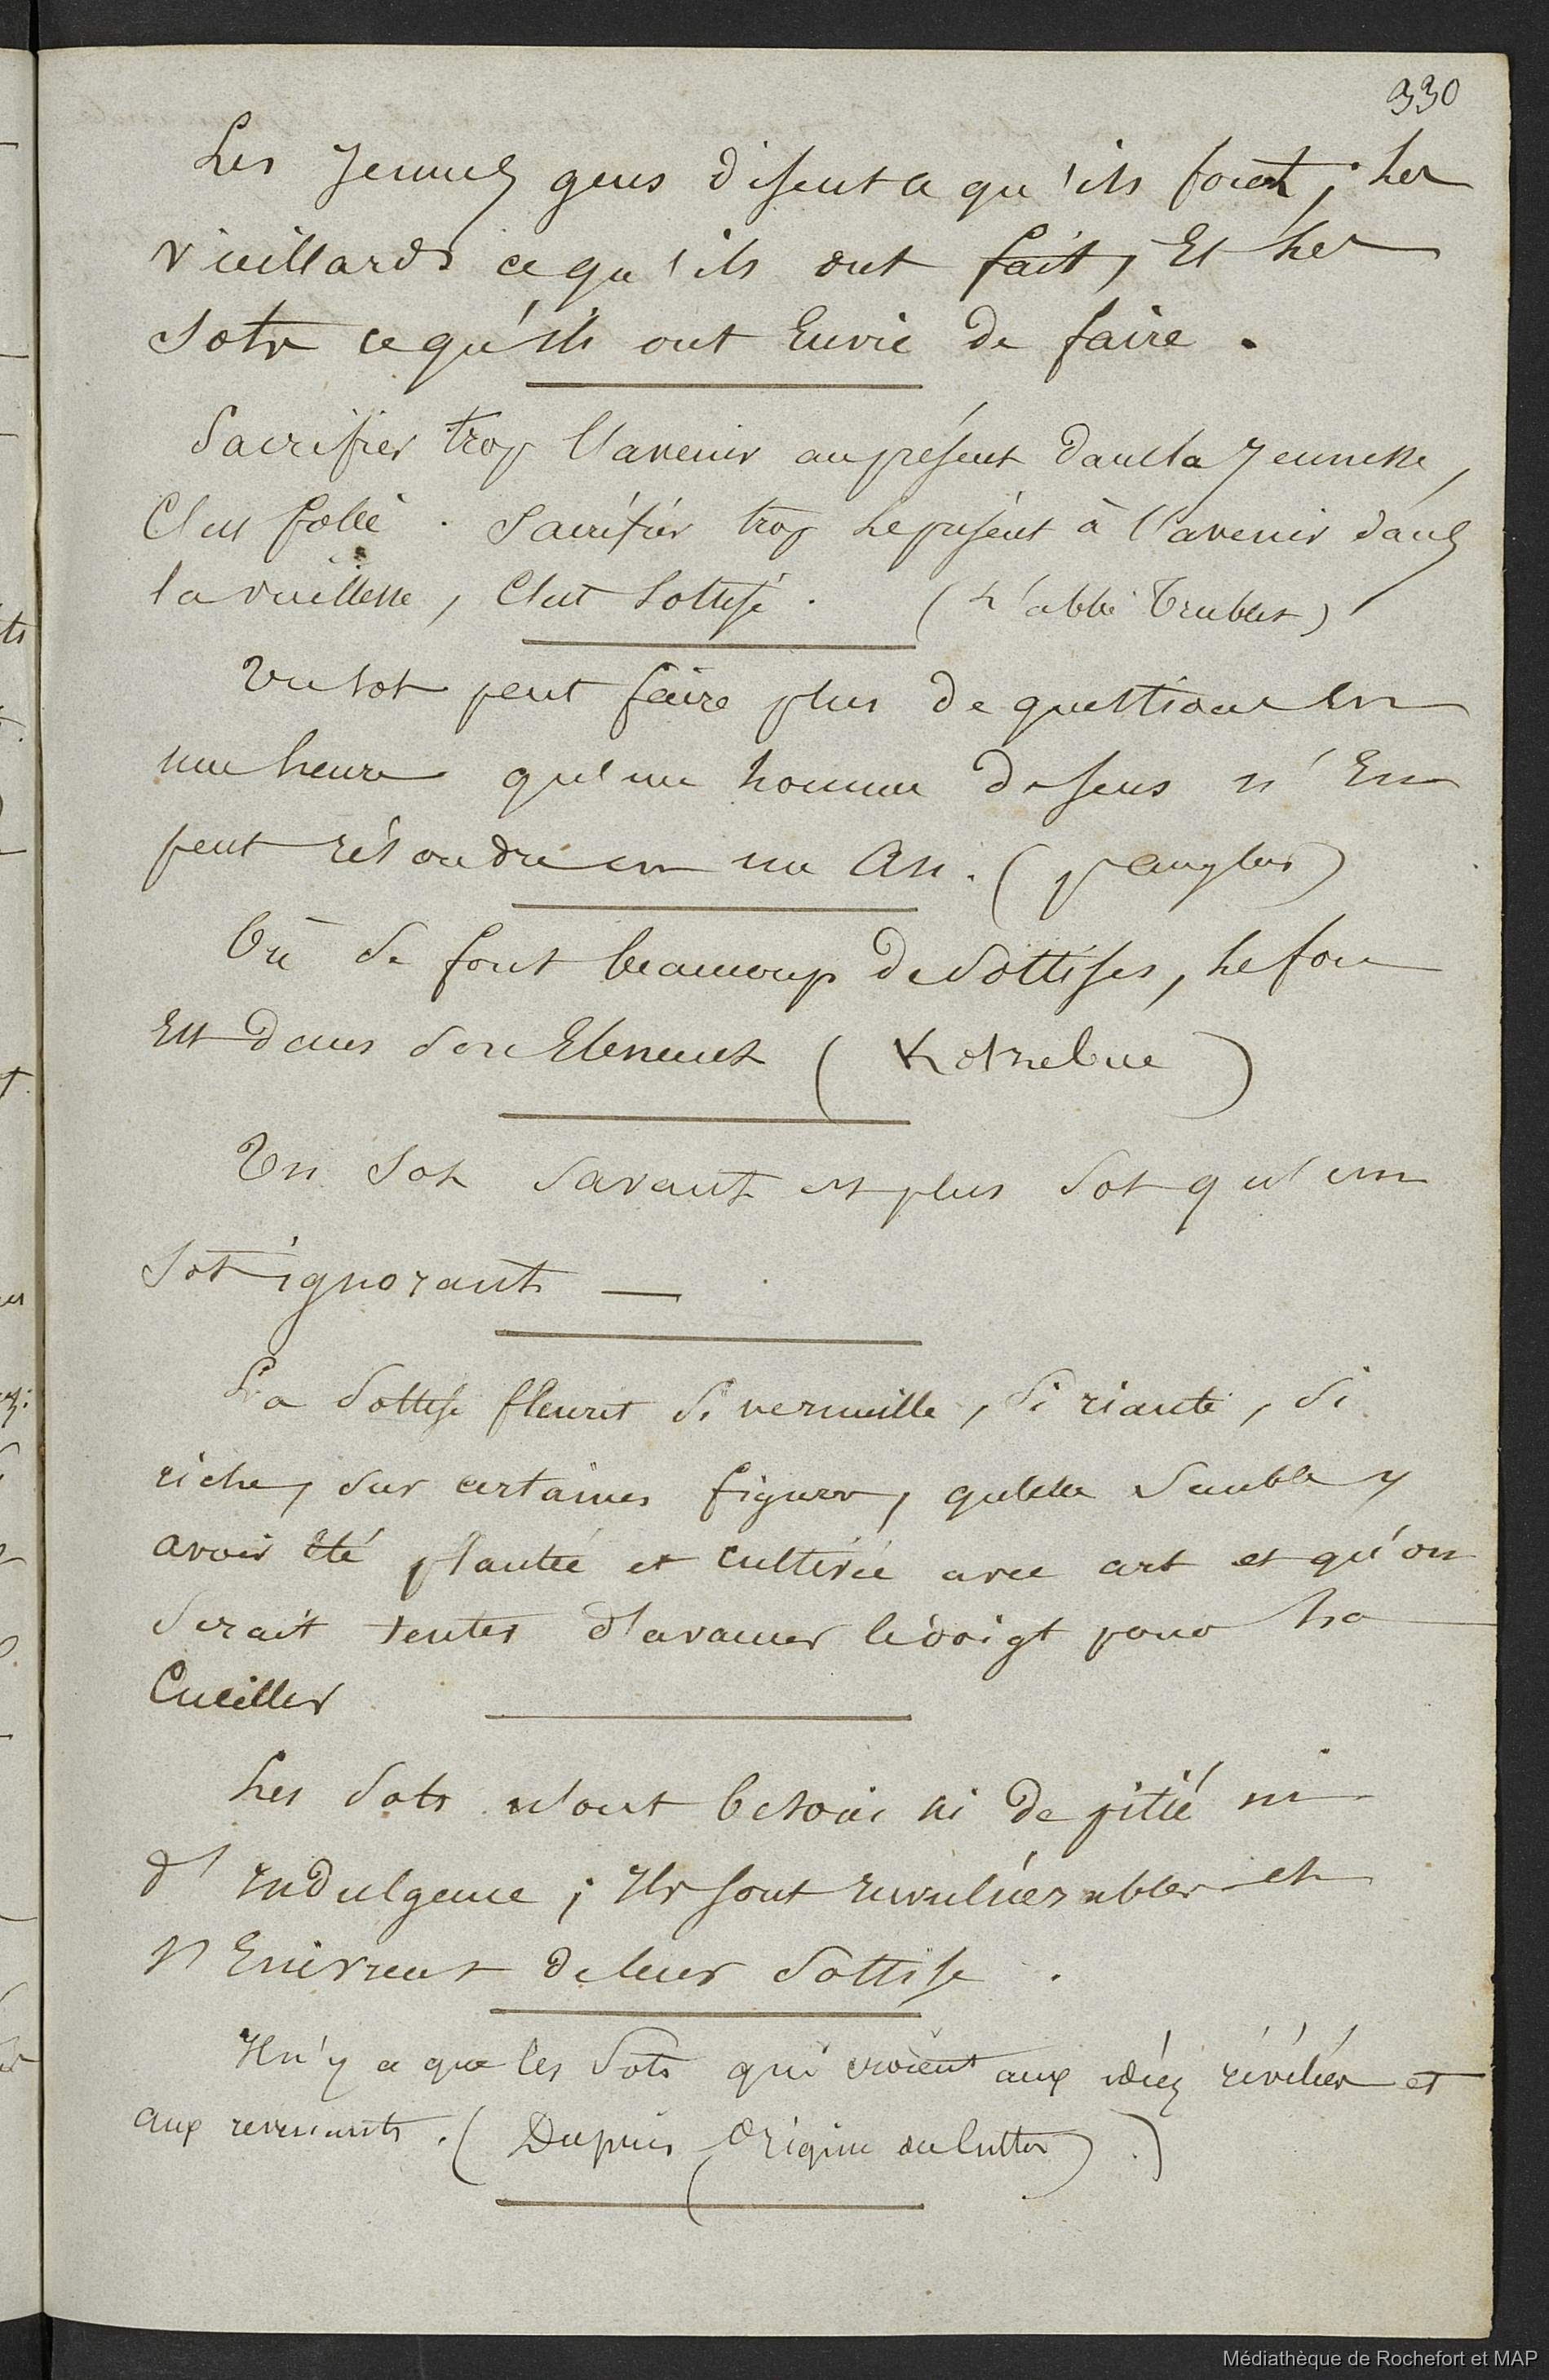 330
Les Jeunes gens disent ce qu'ils font ; Les
vieillards ce qu'ils ont fait, Et Les
Sots ce qu'ils ont Envie de faire.
Sacrifier trop l'avenir au présent dans la Jeunesse,
C'est folie. Sacrifier trop Le présent à l'avenir dans
la vieillesse, C'est Sottise. (L'abbé Trublet)
Un sot peut faire plus de questions En
une heure qu'un homme de sens n'En
peut résoudre en un An. (pr anglais)
Où Se font beaucoup de Sottises, Le fou
Est dans Son Elément (Kotzebue)
Un Sot Savant est plus Sot qu'un
Sot ignorant —
La Sottise fleurit Si vermeille, Si riante, Si
riche, Sur certaines figures, qu'elle Semble y
avoir Eté plantée et cultivée avec art et qu'on
Serait tenter d'avancer le doigt pour La
Cueillir
Les Sots n'ont besoin ni de pitié ni
d'Indulgence ; Ils sont invulnérables et
s'Enivrent de leur Sottise.
Il n'y a que les Sots qui croient aux idées révélées et
aux revenants. (Dupuis (Origine des Cultes).)
Médiathèque de Rochefort et MAP